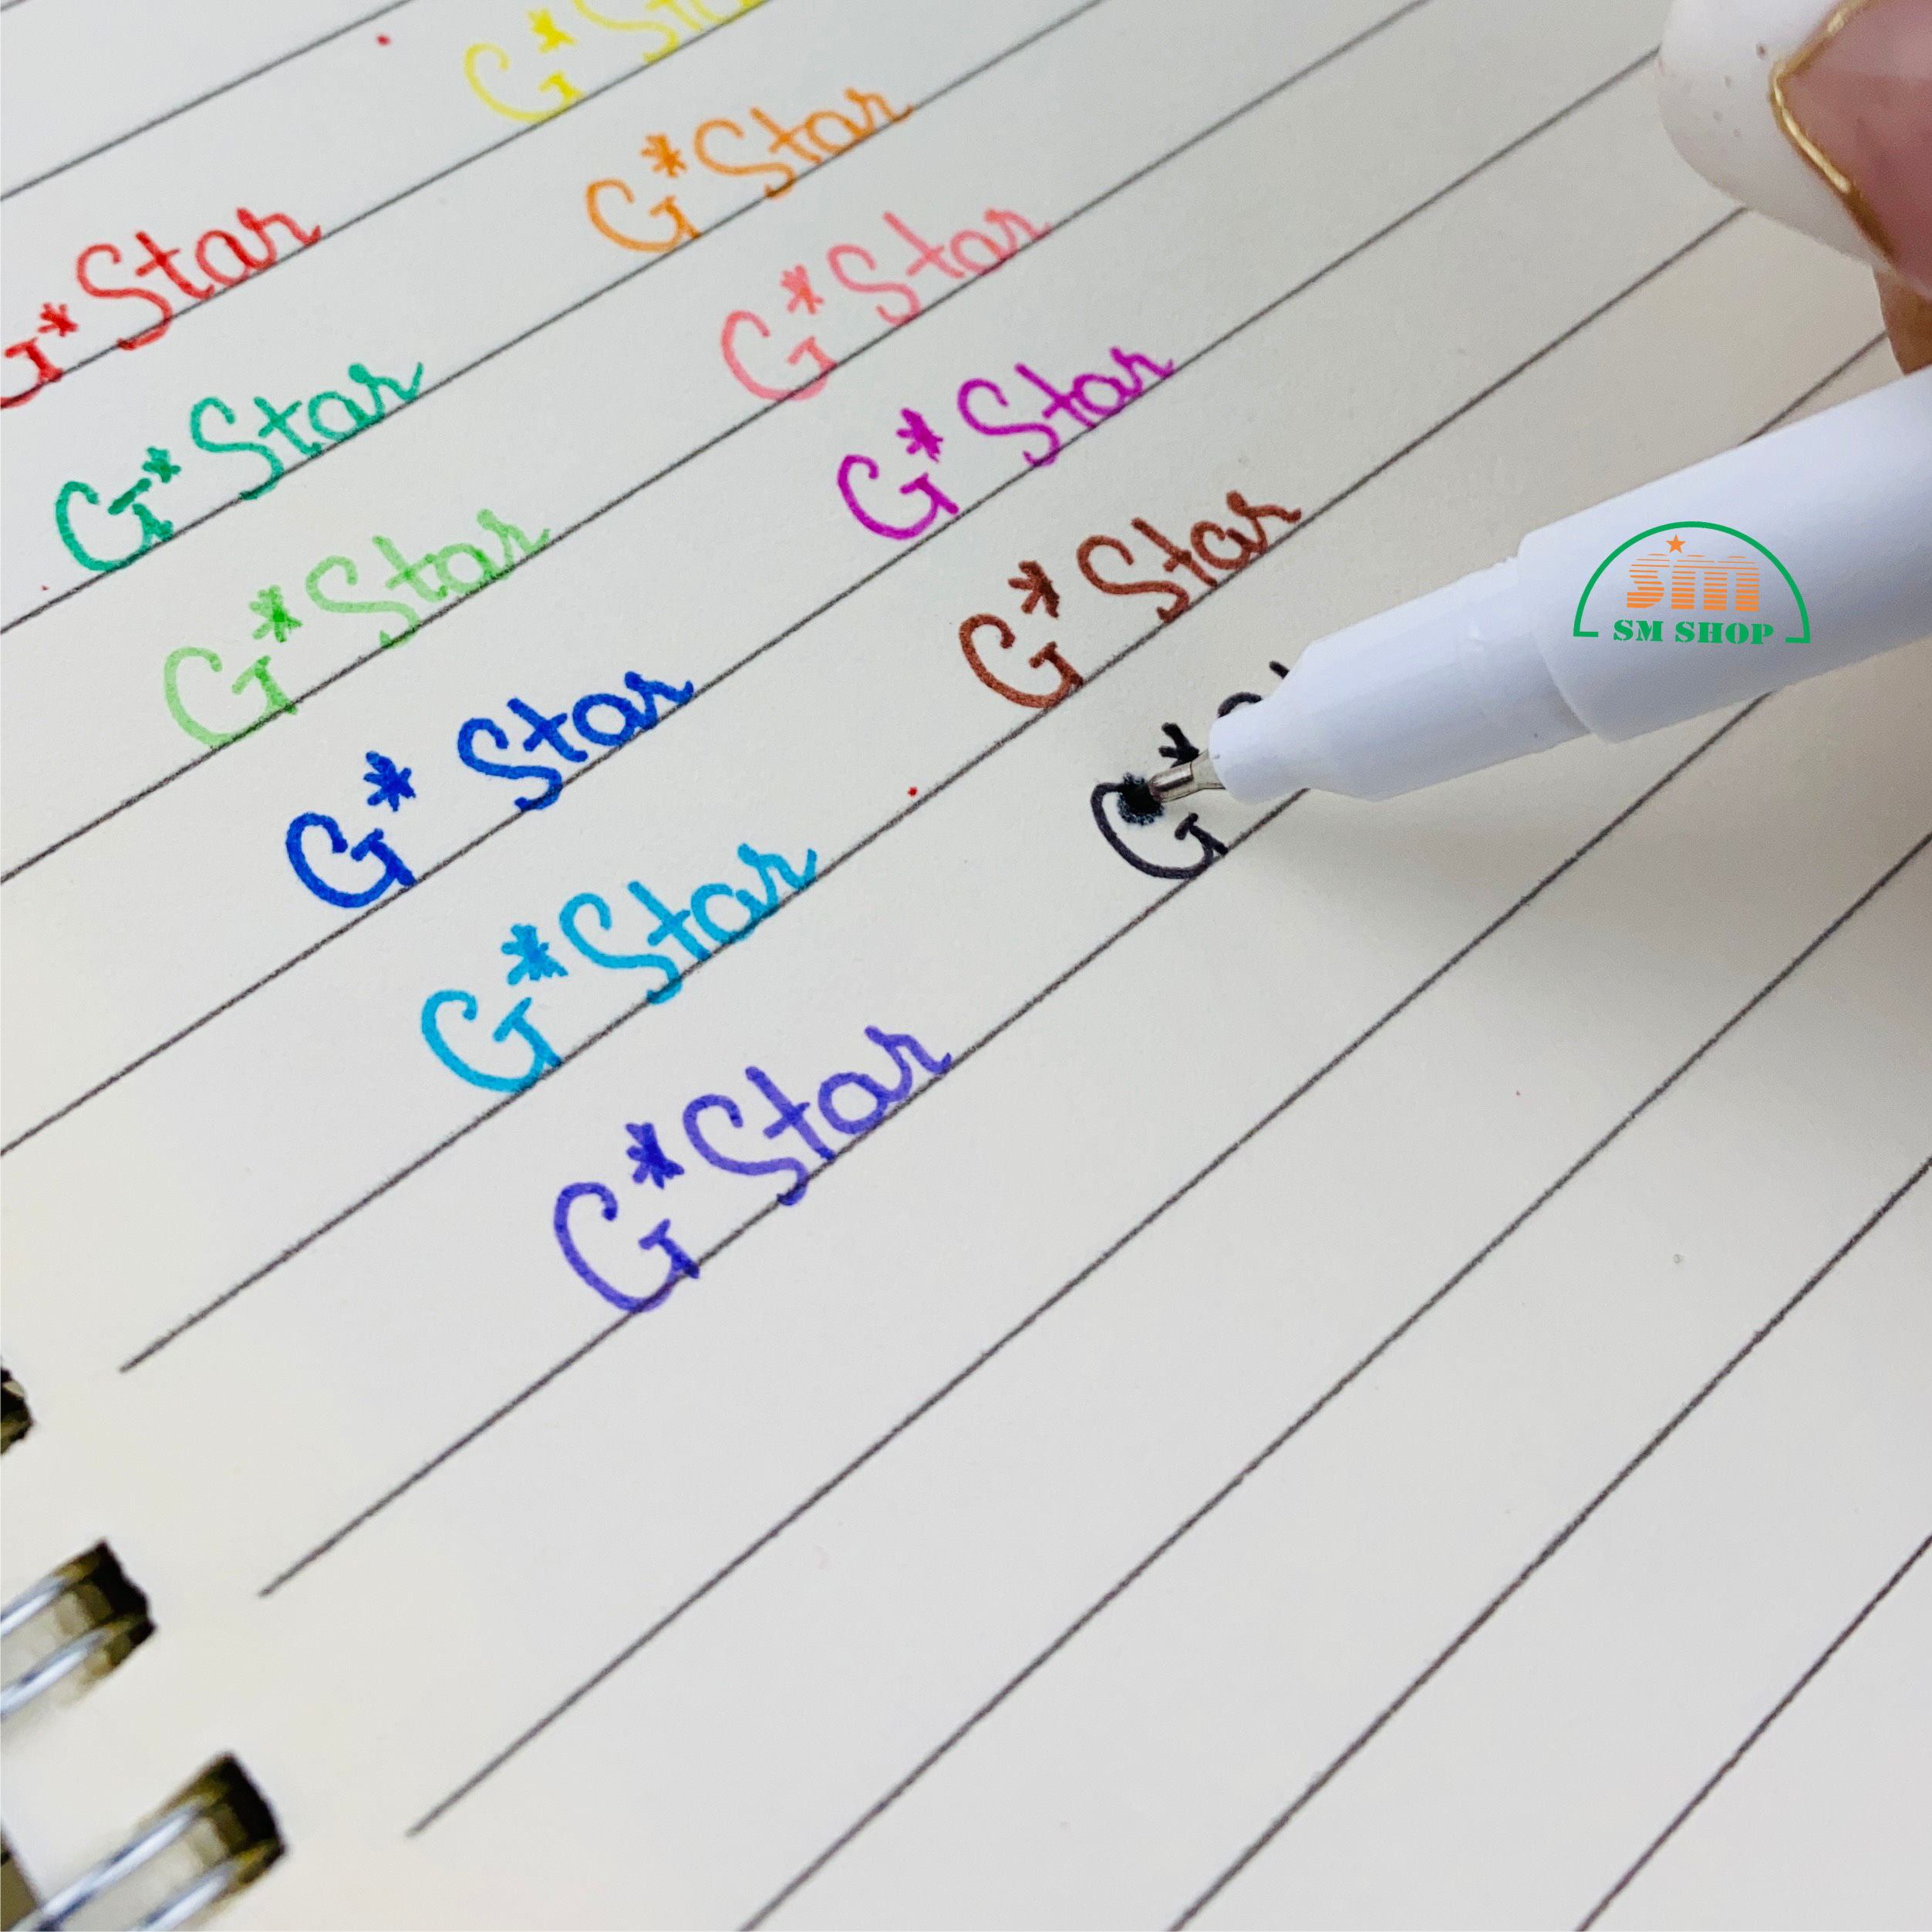 G*Star
G*Star
G*Star
G*Star
G*Star
G*Star
G*Star
G*Star
G*Star
G*Star
G*
sm
SM SHOP